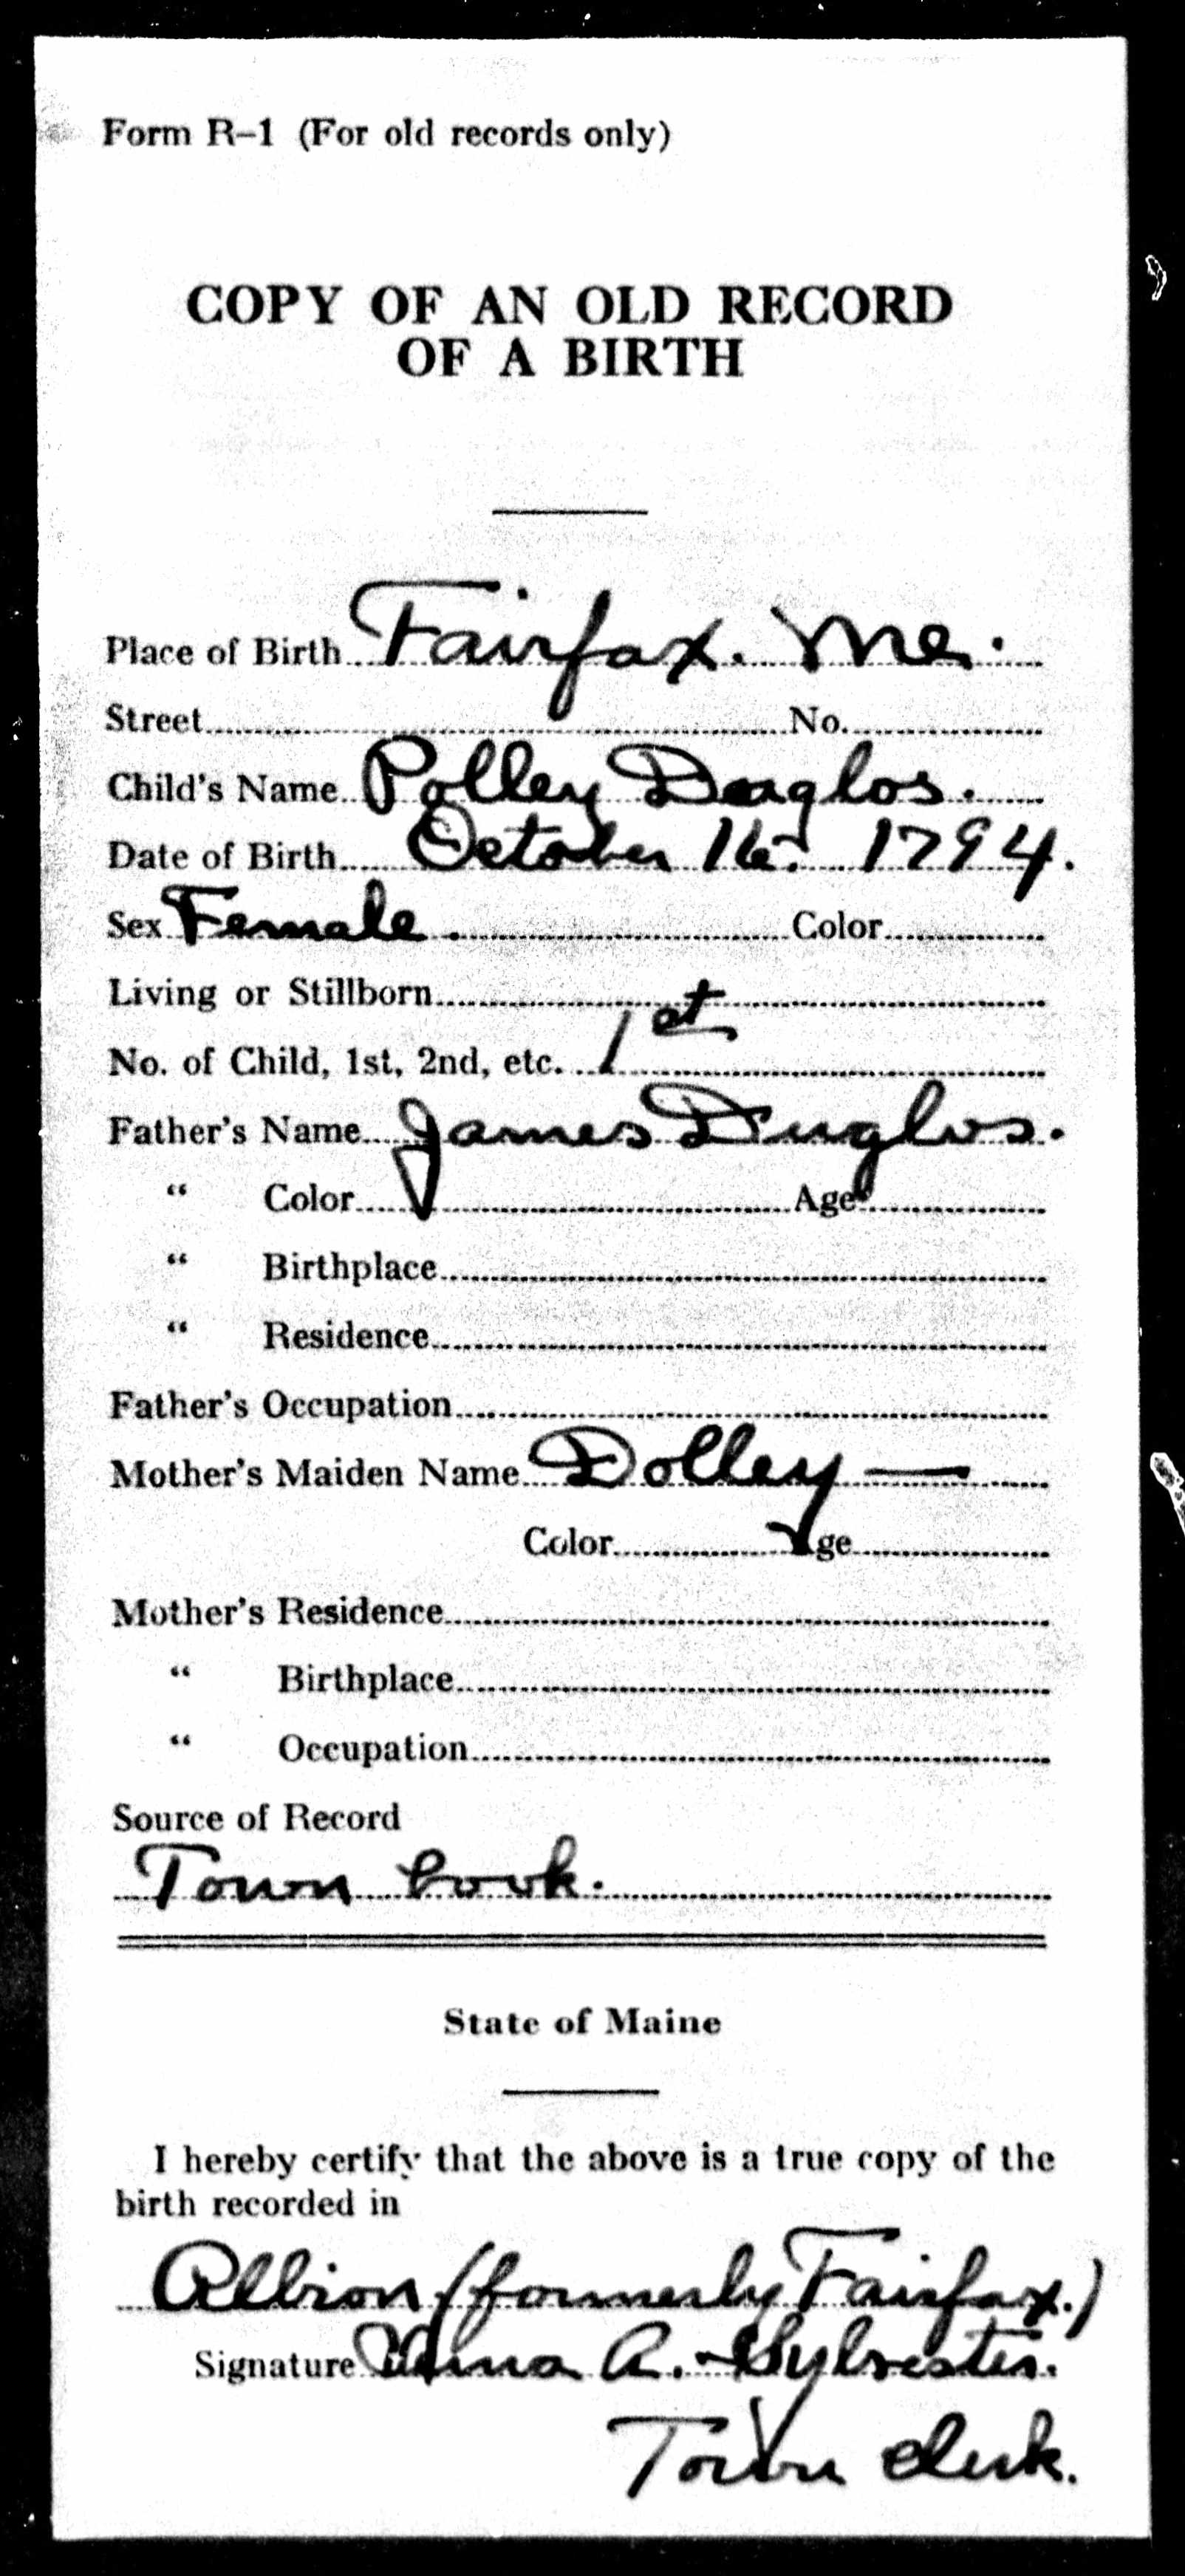 Form R-1 (For old records only)
COPY OF AN OLD RECORD
OF A BIRTH
Place of Birth Fairfax. Me.
Street No.
Child's Name Polley Duglos.
Date of Birth October 16. 1794.
Sex Female. Color
Living or Stillborn
No. of Child, 1st, 2nd, etc. 1st
Father's Name James Duglos.
" Color Age
" Birthplace
" Residence
Father's Occupation
Mother's Maiden Name Dolley —
Color Age
Mother's Residence
" Birthplace
" Occupation
Source of Record
Town book.
State of Maine
I hereby certify that the above is a true copy of the
birth recorded in
Albion (formerly Fairfax.)
Signature A. Sylvester.
Town Clerk.